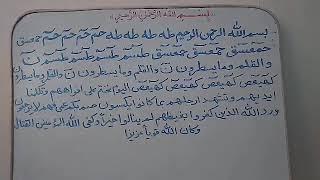 بسم الله الرحمن الرحيم
بسم الله الرحمن الرحيم طه طه طه طه حم حم حم حم حمعسق
حمعسق حمعسق حمعسق طسم طسم طسم طسم ن
والقلم وما يسطرون ن والقلم وما يسطرون ن والقلم وما يسطرون
كهيعص كهيعص كهيعص كهيعص اليوم نختم على افواههم وتكلمنا
ايديهم وتشهد ارجلهم بما كانوا يكسبون صم بكم عمي فهم لا يرجعون
ورد الله الذين كفروا بغيظهم لم ينالوا خيرا وكفى الله المؤمنين القتال
وكان الله قويا عزيزا